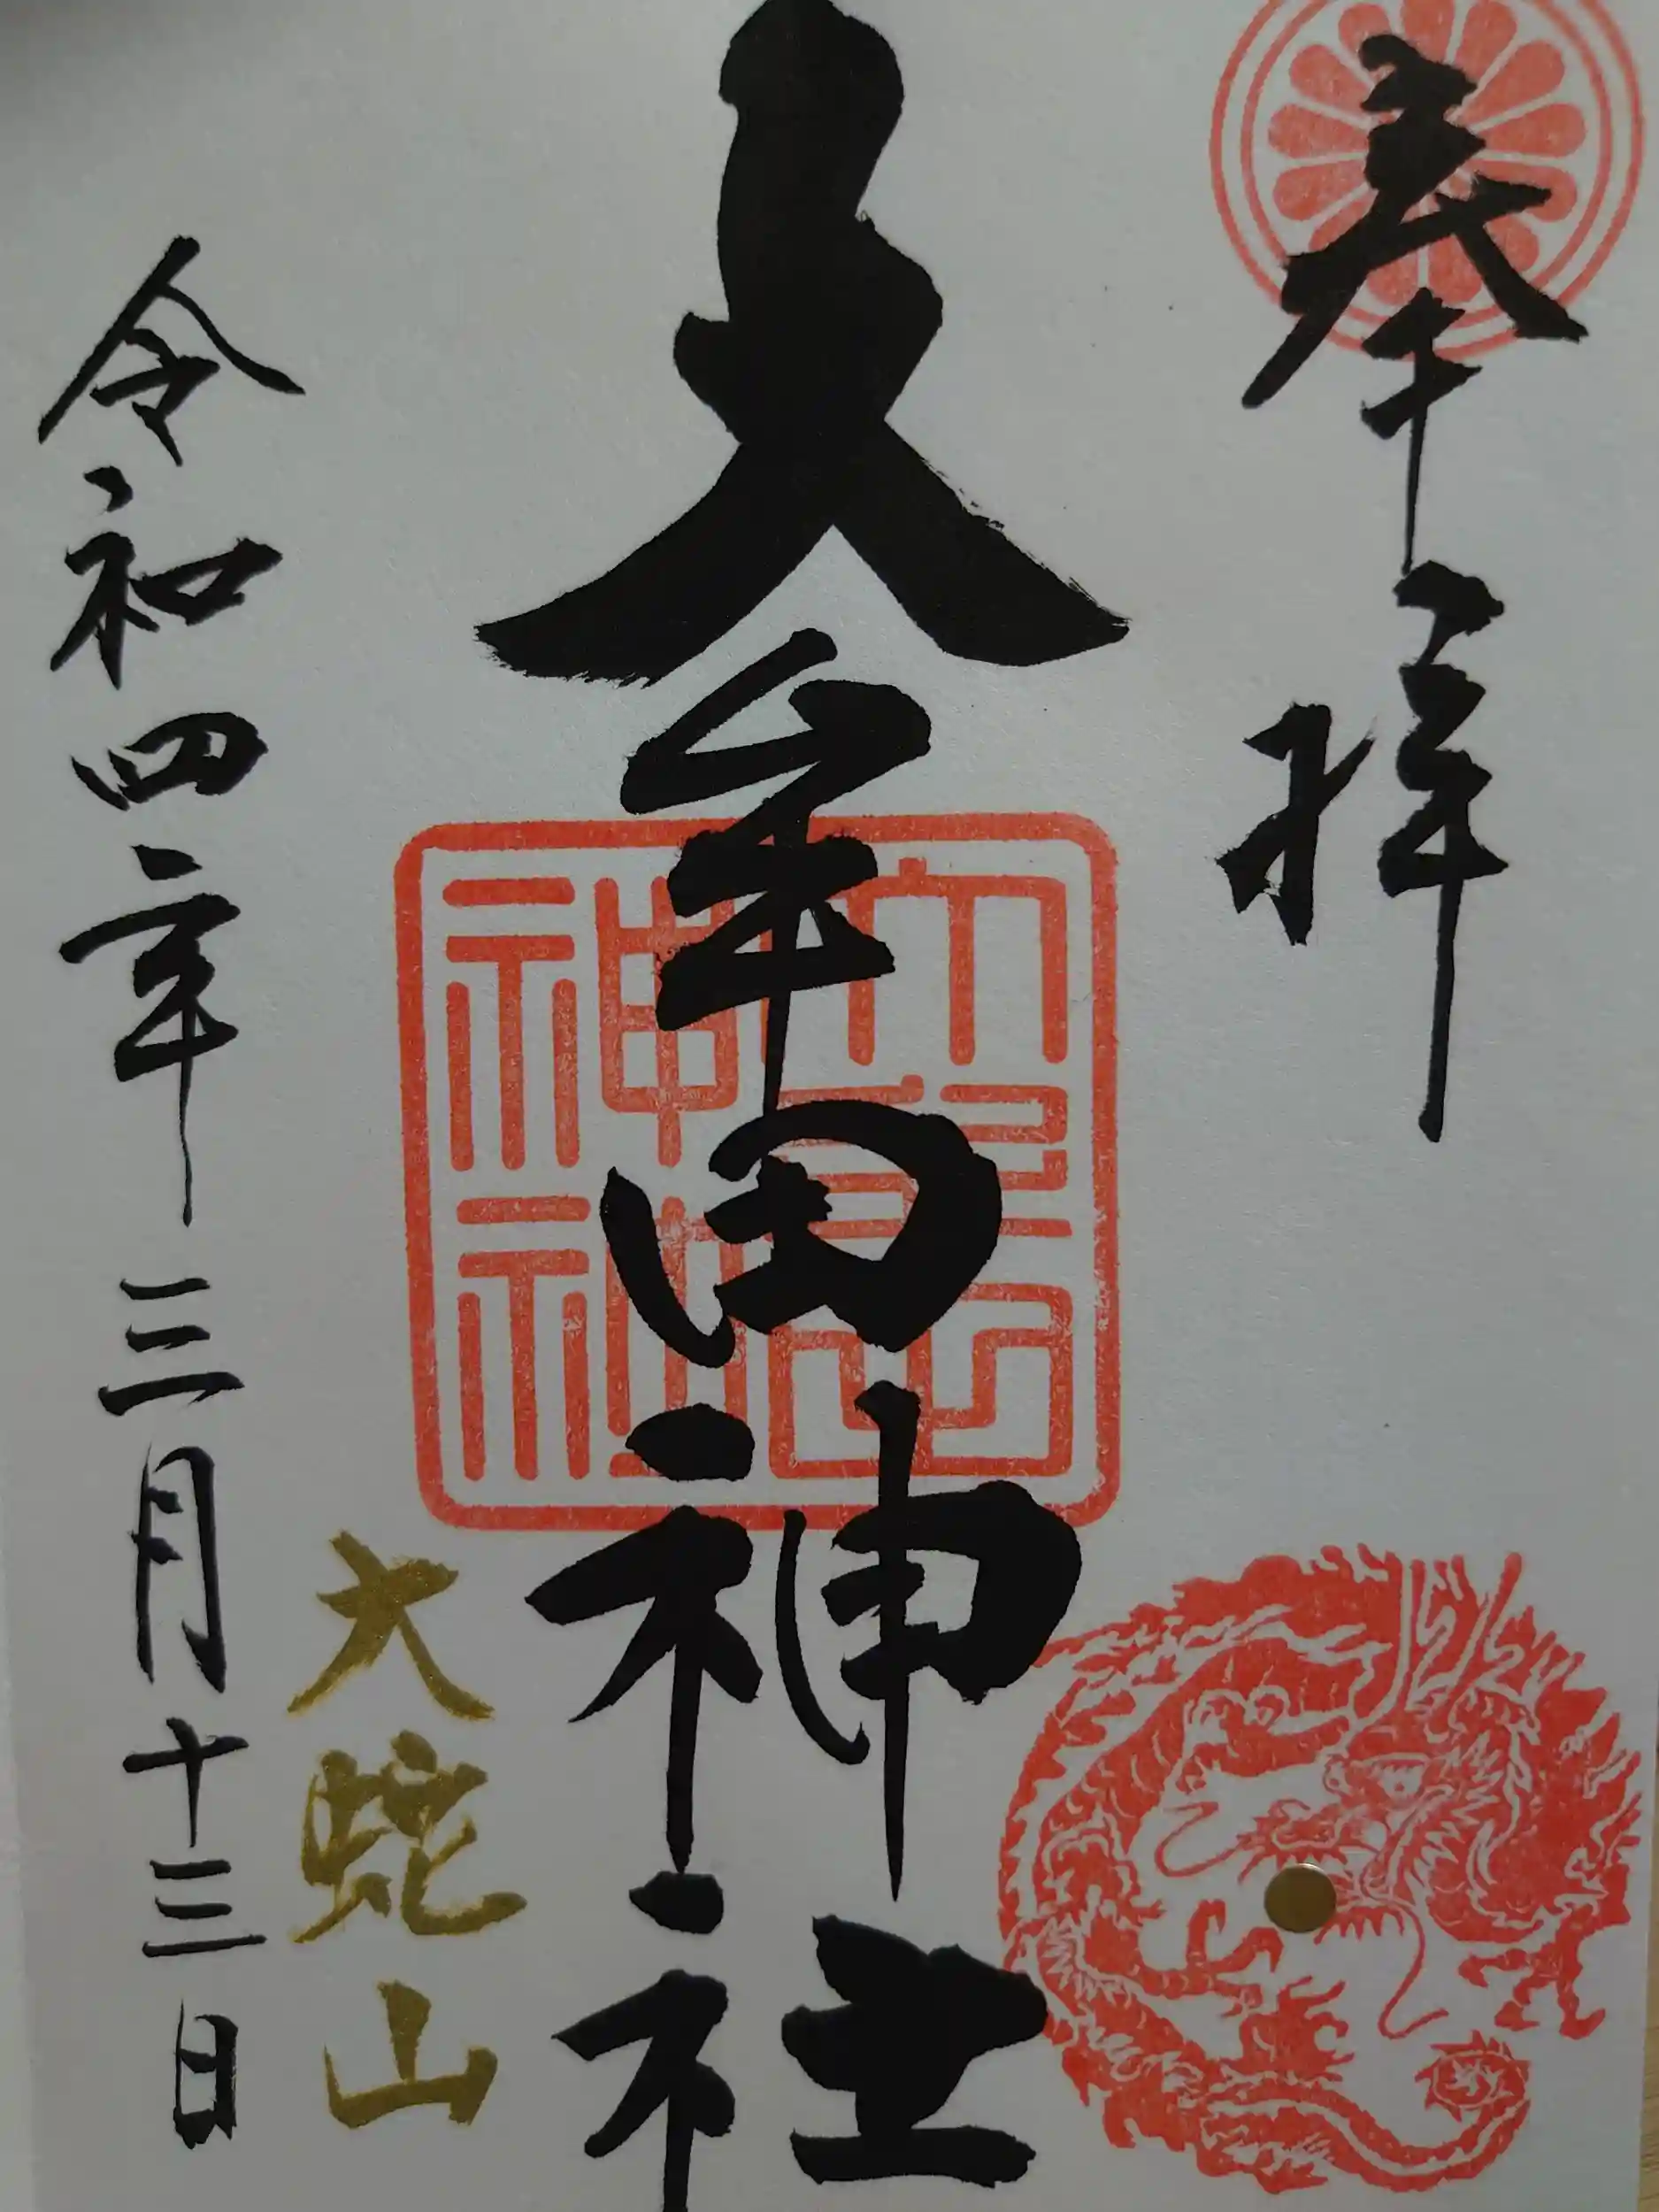 奉拝
大牟田神社
大蛇山
令和四年三月十三日